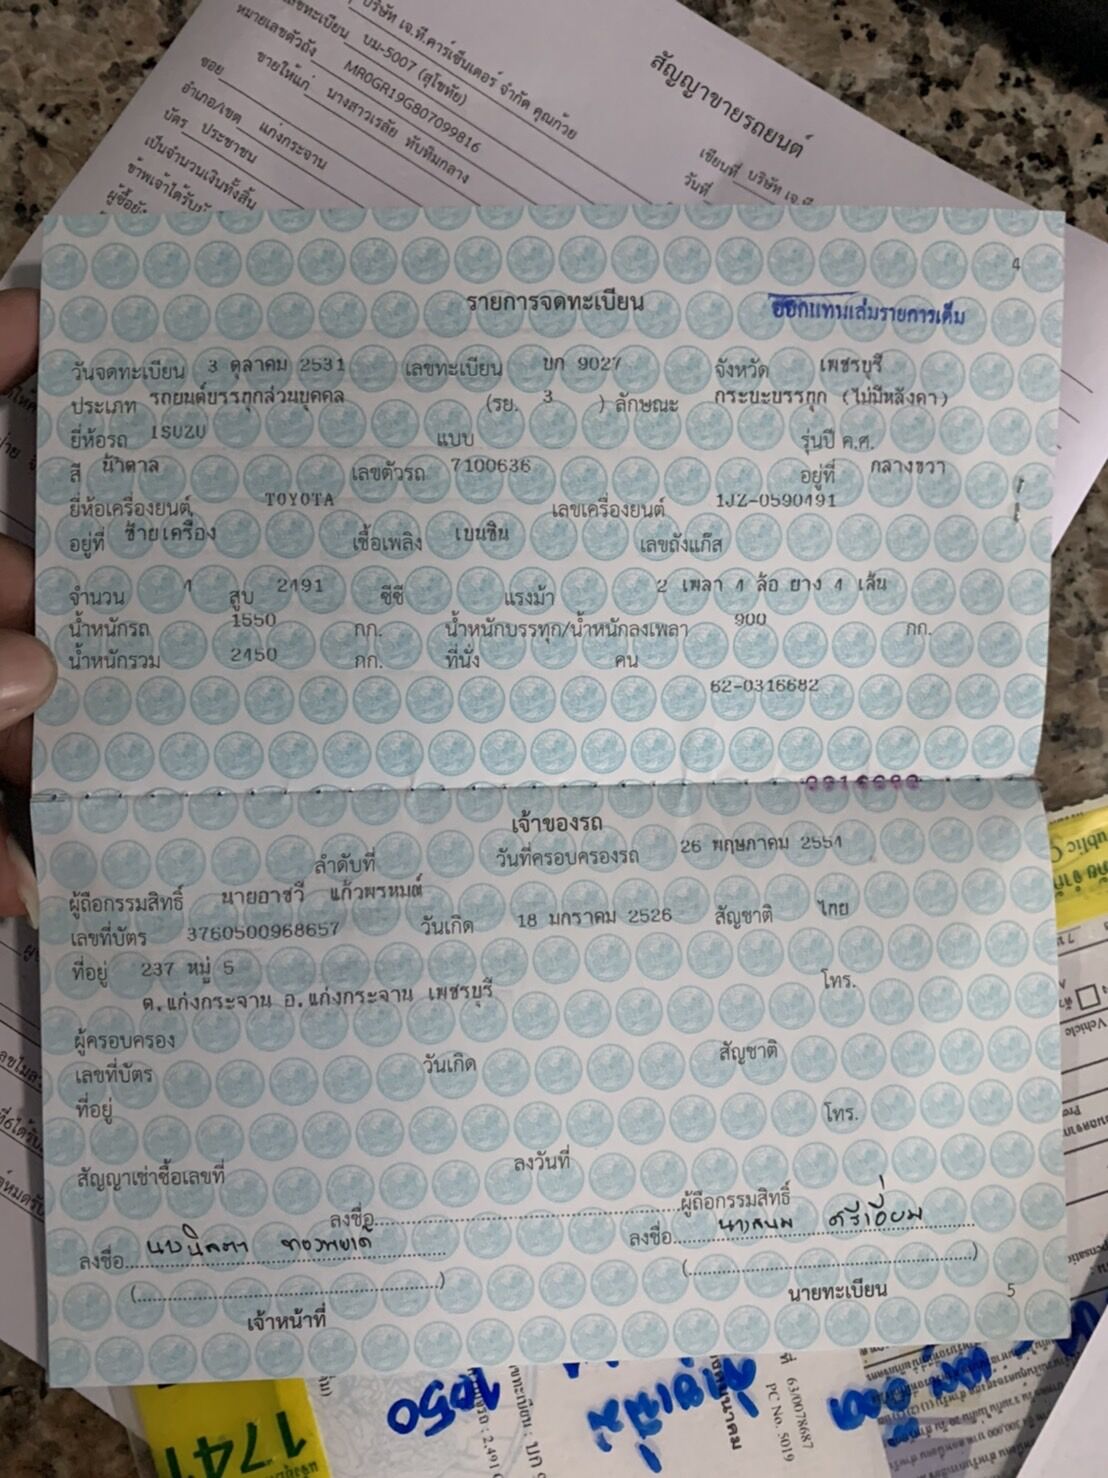 สัญญาขายรถยนต์
เขียนที่ บริษัท เจ.ที.
วันที่
บริษัท เจ.ที.คาร์เซ็นเตอร์ จำกัด คุณก้วย
เลขทะเบียน บม-5007 (สุโขทัย)
หมายเลขตัวถัง MR0GR19G807099816
ขายให้แก่ นางสาวเรลัย ทับทิมกลาง
ซอย
อำเภอ/เขต แก่งกระจาน
บัตร ประชาชน
เป็นจำนวนเงินทั้งสิ้น
ข้าพเจ้าได้รับ
4
รายการจดทะเบียน
ออกแทนเล่มรายการเดิม
วันจดทะเบียน 3 ตุลาคม 2531 เลขทะเบียน บก 9027 จังหวัด เพชรบุรี
ประเภท รถยนต์บรรทุกส่วนบุคคล (รย. 3 ) ลักษณะ กระบะบรรทุก (ไม่มีหลังคา)
ยี่ห้อรถ ISUZU แบบ รุ่นปี ค.ศ.
สี น้ำตาล เลขตัวรถ 7100636 อยู่ที่ กลางขวา
ยี่ห้อเครื่องยนต์ TOYOTA เลขเครื่องยนต์ 1JZ-0590491
อยู่ที่ ซ้ายเครื่อง เชื้อเพลิง เบนซิน เลขถังแก๊ส
จำนวน 4 สูบ 2491 ซีซี แรงม้า 2 เพลา 4 ล้อ ยาง 4 เส้น
น้ำหนักรถ 1550 กก. น้ำหนักบรรทุก/น้ำหนักลงเพลา 900 กก.
น้ำหนักรวม 2450 กก. ที่นั่ง คน
62-0316682
เจ้าของรถ
ลำดับที่ วันที่ครอบครองรถ 26 พฤษภาคม 2554
ผู้ถือกรรมสิทธิ์ นายอาชวี แก้วพรหมณ์
เลขที่บัตร 3760500968657 วันเกิด 18 มกราคม 2526 สัญชาติ ไทย
ที่อยู่ 237 หมู่ 5 โทร.
ต.แก่งกระจาน อ.แก่งกระจาน เพชรบุรี
ผู้ครอบครอง
เลขที่บัตร วันเกิด สัญชาติ
ที่อยู่ โทร.
สัญญาเช่าซื้อเลขที่ ลงวันที่
ลงชื่อ ผู้ถือกรรมสิทธิ์
ลงชื่อ ลงชื่อ
เจ้าหน้าที่ นายทะเบียน
5
1741
1050
63/0078687
PC No. 5019